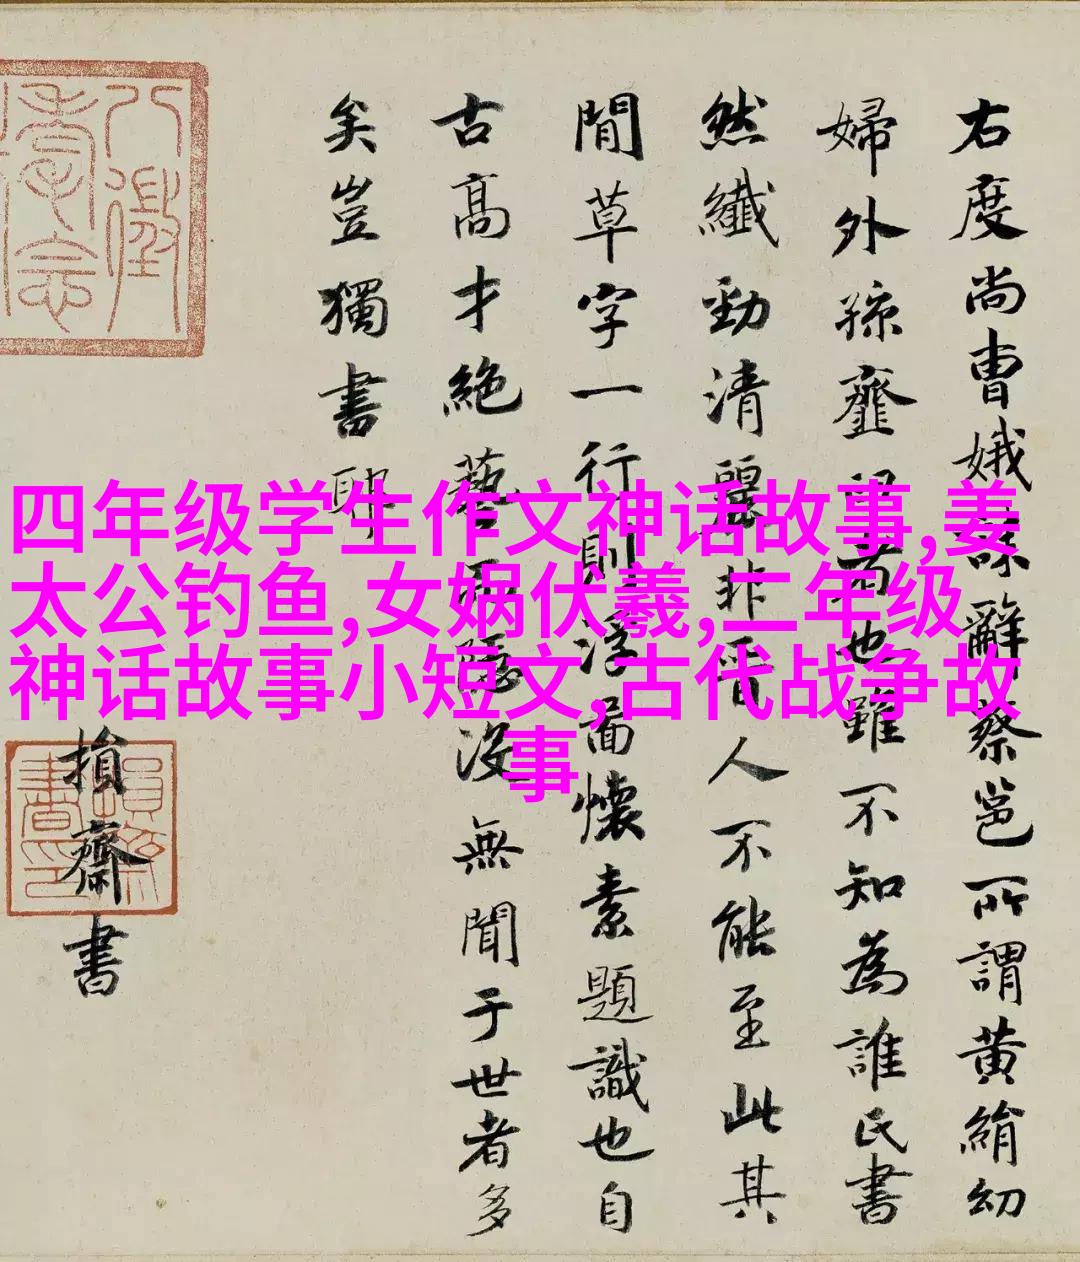 右度尚曹娥誄辭蔡邕所謂黄絹幼
婦外孫虀臼者也雖不知為誰氏書
然纖勁清麗非晋人不能至此其
閒草字一行則浮啚懷素題識也自
古高才絶藝而隱没無聞于世者多
矣豈獨書耶
損齋書
四年级学生作文神话故事,姜
太公钓鱼,女娲伏羲,二年级
神话故事小短文,古代战争故
事